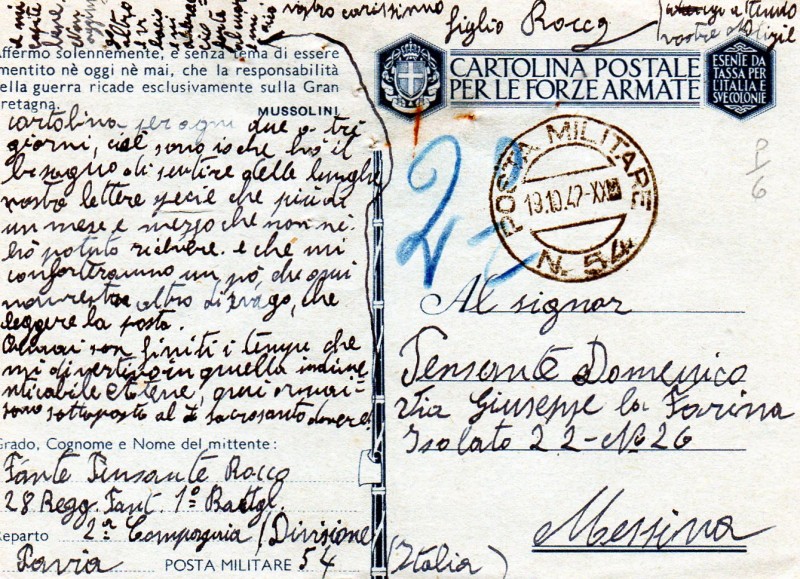 vostro carissimo figlio Rocco
Affermo solennemente, e senza tema di essere
smentito nè oggi nè mai, che la responsabilità
della guerra ricade esclusivamente sulla Gran
Bretagna.
MUSSOLINI
cartolina per ogni due o tre
giorni, cioè sono io che hò il
bisogno di sentire delle lunghe
vostre lettere specie che più di
un mese e mezzo che non ne
hò potuto ricevere. e che mi
conforteranno un pò, che qui
non resta altro di svago, che
leggere la posta.
Ormai son finiti i tempi che
mi divertivo in quella indime
nticabile Atene, qui ormai
sono sottoposto al sacrosanto dovere
Grado, Cognome e Nome del mittente:
Fante Pensante Rocco
28 Regg. Fant. 1º Battgl.
Reparto 2ª Compagnia / (Divisione
Pavia POSTA MILITARE 54
CARTOLINA POSTALE
PER LE FORZE ARMATE
ESENTE DA
TASSA PER
L'ITALIA E
SVE COLONIE
POSTA MILITARE
19.10.42-XX
N. 54
P/6
Al signor
Pensante Domenico
Via Giuseppe la Farina
Isolato 22-No 26
Messina
(Italia)